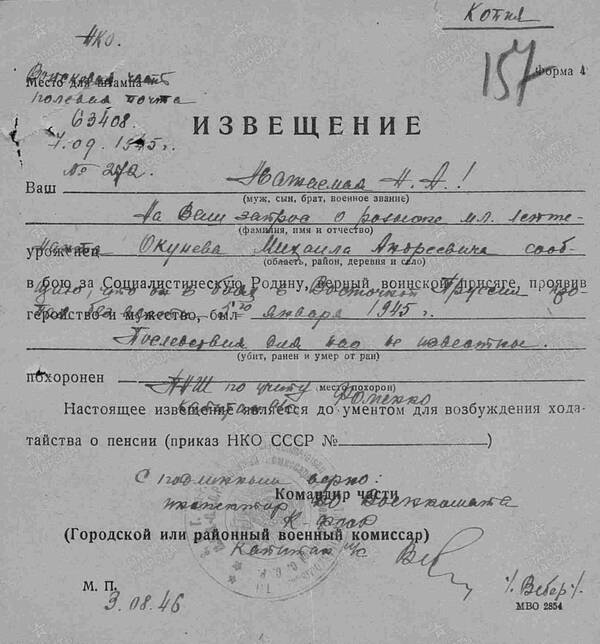 Копия
НКО.
Войсковая часть
157
Форма 4
Место для штампа
полевая почта
63408
ИЗВЕЩЕНИЕ
7.09.1945г.
№ 272.
Ваш Уважаемая Н. А.!
(муж, сын, брат, военное звание)
На Ваш запрос о розыске мл. лейте-
(фамилия, имя и отчество)
уроженец
нанта Окунева Михаила Андреевича сооб-
(область, район, деревня и село)
в бою за Социалистическую Родину, верный воинской присяге, проявив
щаю, что он в боях в Восточной Пруссии про-
геройство и мужество, был
пал без вести января 1945 г.
Последствия для нас не известны.
(убит, ранен и умер от ран)
похоронен
ПНШ по учету
(место похорон)
капитан Фоменко
Настоящее извещение является документом для возбуждения хода-
тайства о пенсии (приказ НКО СССР № )
С подлинным верно:
Командир части
Военкомата
(Городской или районный военный комиссар)
Капитан
/Вебер/.
М. П.
3.08.46
МВО 2854